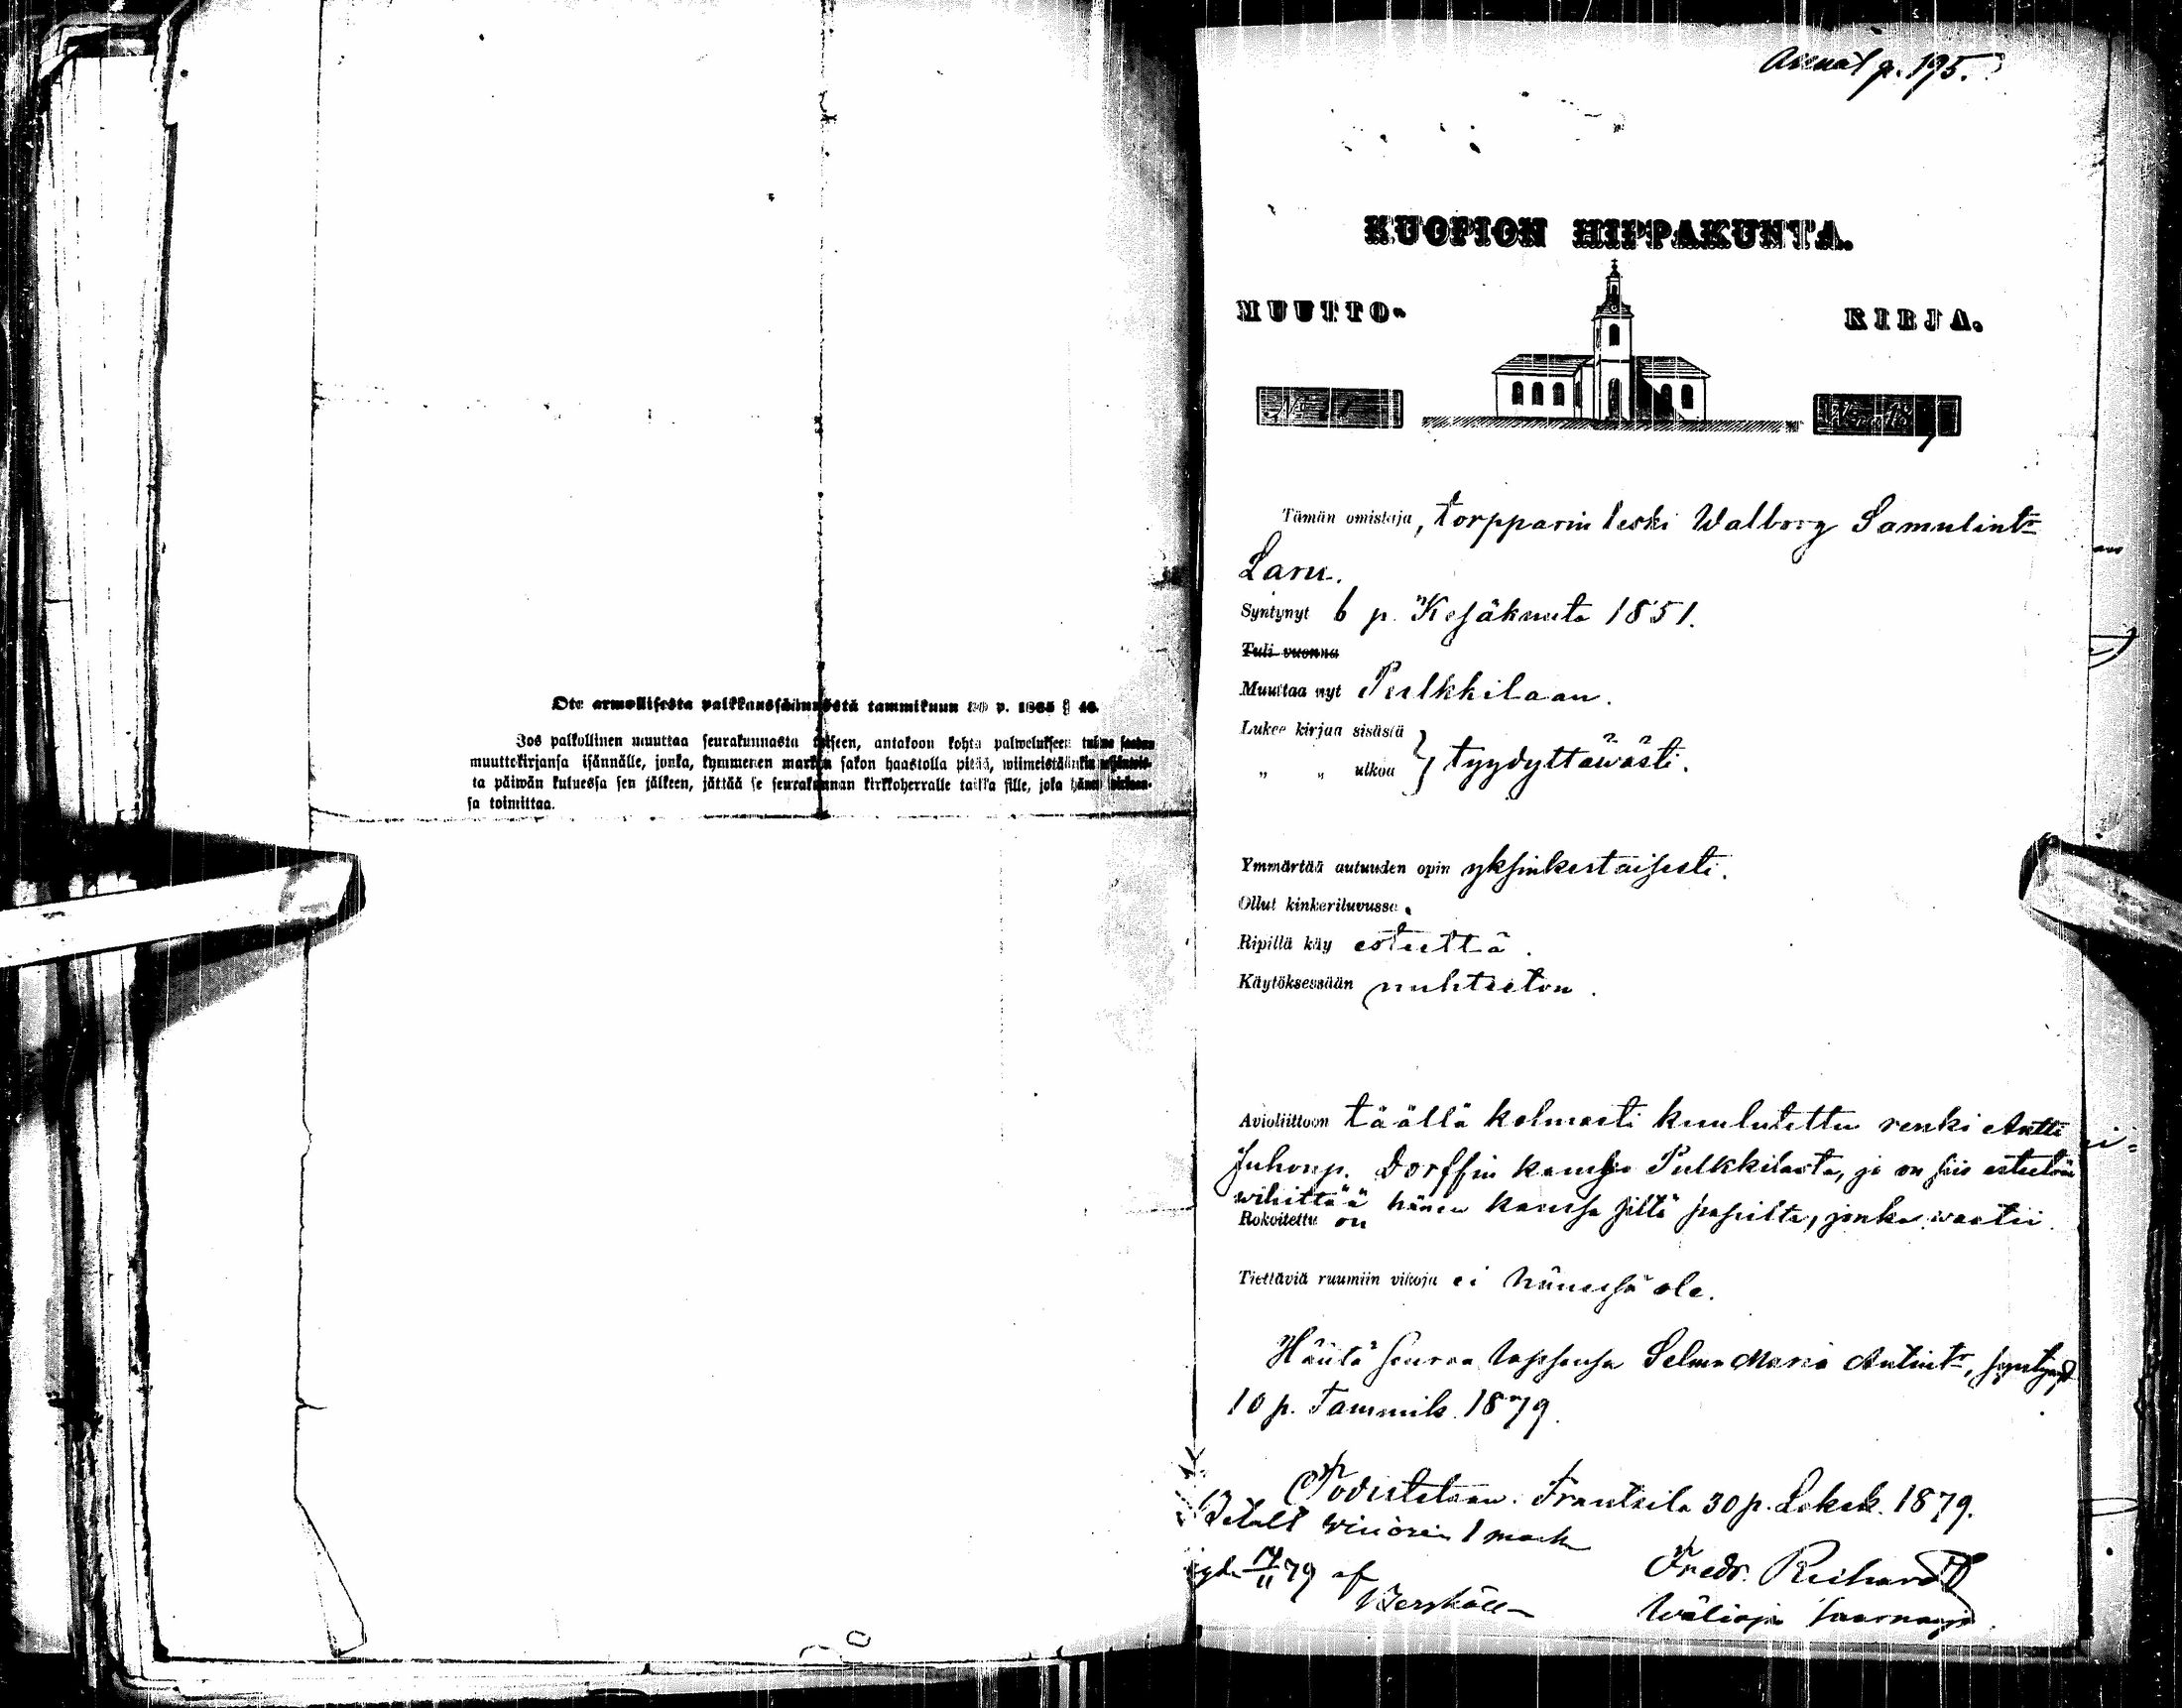 Ote armollisesta palkkaussäännöstä tammikuun 30 p. 1865 § 46.
Jos palkollinen muuttaa seurakunnasta toiseen, antakoon kohta palwelukseen
muuttokirjansa isännälle, jonka, kymmenen markan sakon haastolla pitää,
ta päiwän kuluessa sen jälkeen, jättää se seurakunnan kirkkoherralle taikka sille, joka hänen
sa toimittaa.
p. 195.
KUOPION HIPPAKUNTA.
MUUTTO- KIRJA.
Tämän omistaja, torpparin leski Walborg Samulint:r
Laru.
Syntynyt 6 p. Kesäkuuta 1851.
Tuli vuonna
Muuttaa nyt Pulkkilaan.
Lukee kirjaa sisästä
" " ulkoa } tyydyttäwästi.
Ymmärtää autuuden opin yksinkertaisesti.
Ollut kinkeriluvussa
Ripillä käy esteettä.
Käytöksessään nuhteeton.
Avioliittoon täällä kolmasti kuulutettu renki Antti
Juhonp. Dorffin kanssa Pulkkilasta, ja on siis esteetön
wihittää hänen kanssa siltä papilta, jonka waatii.
Rokoitettu on
Tiettäviä ruumiin vikoja ei hänessä ole.
Häntä seuraa lapsensa Selma Maria Antint:r, syntynyt
10 p. Tammik. 1879.
Todistetaan. Frantsila 30 p. Lokak. 1879.
Betalt 1 mark
79 af
Fredr. Reichardt
Wäliajan saarnaaja.